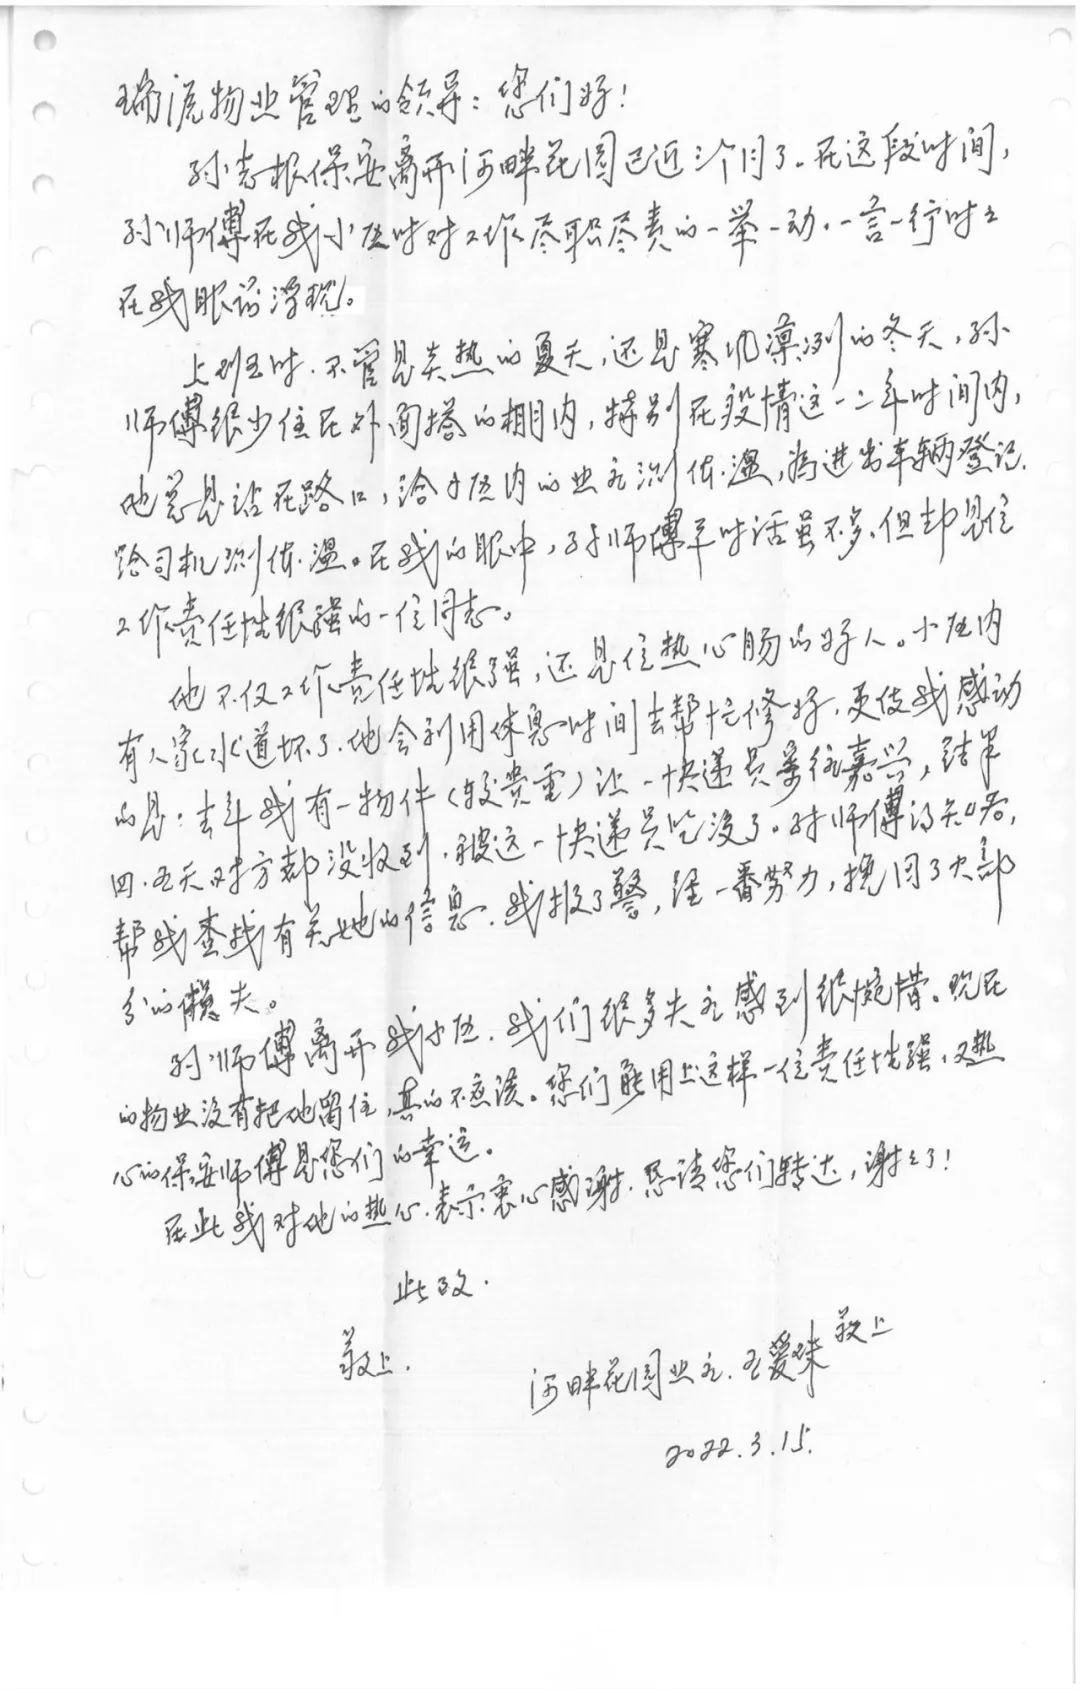 瑞流物业管理的领导：您们好！
孙志根保安离开河畔花园已近三个月了。在这段时间，
孙师傅在我小区时对工作尽职尽责的一举一动。一言一行时之
在我眼前浮现。
上到五时．不管是炎热的夏天，还是寒风凛冽的冬天，孙
师傅很少住在外面搭的棚内，特别在疫情这一二年时间内，
他总是站在路口，给小区内的业主测体温，为进出车辆登记．
给司机测体温。在我的眼中，孙师傅平时话虽不多．但却是位
工作责任性很强的一位同志。
他不仅工作责任性很强，还是位热心肠的好人。小区内
有人家水道坏了．他会利用休息时间去帮忙修好．更使我感动
的是：去年我有一物件（较贵重）让一快递员寄往嘉兴，结果
四．五天对方都没收到．被这一快递员吃没了。孙师傅得知后，
帮我查找有关她的信息．我报了警，经一番努力，挽回了大部
分的损失。
孙师傅离开我小区．我们很多失主感到很惋惜。现在
的物业没有把他留住，真的不应该。您们能用上这样一位责任性强，又热
心的保安师傅是您们的幸运。
在此我对他的热心．表示衷心感谢．恳请您们转达，谢之了！
此致．
敬上．
河畔花园业主．王爱珠 敬上
2022.3.15.